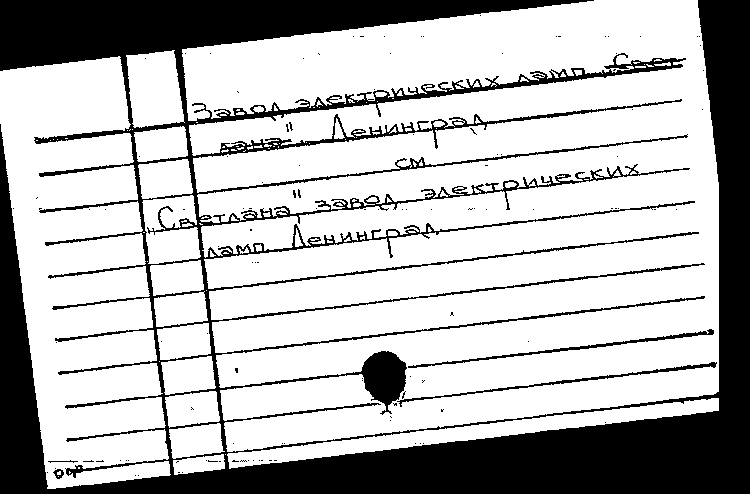 Завод электрических ламп „Свет
лана". Ленинград
см.
„Светлана", завод электрических
ламп. Ленинград.